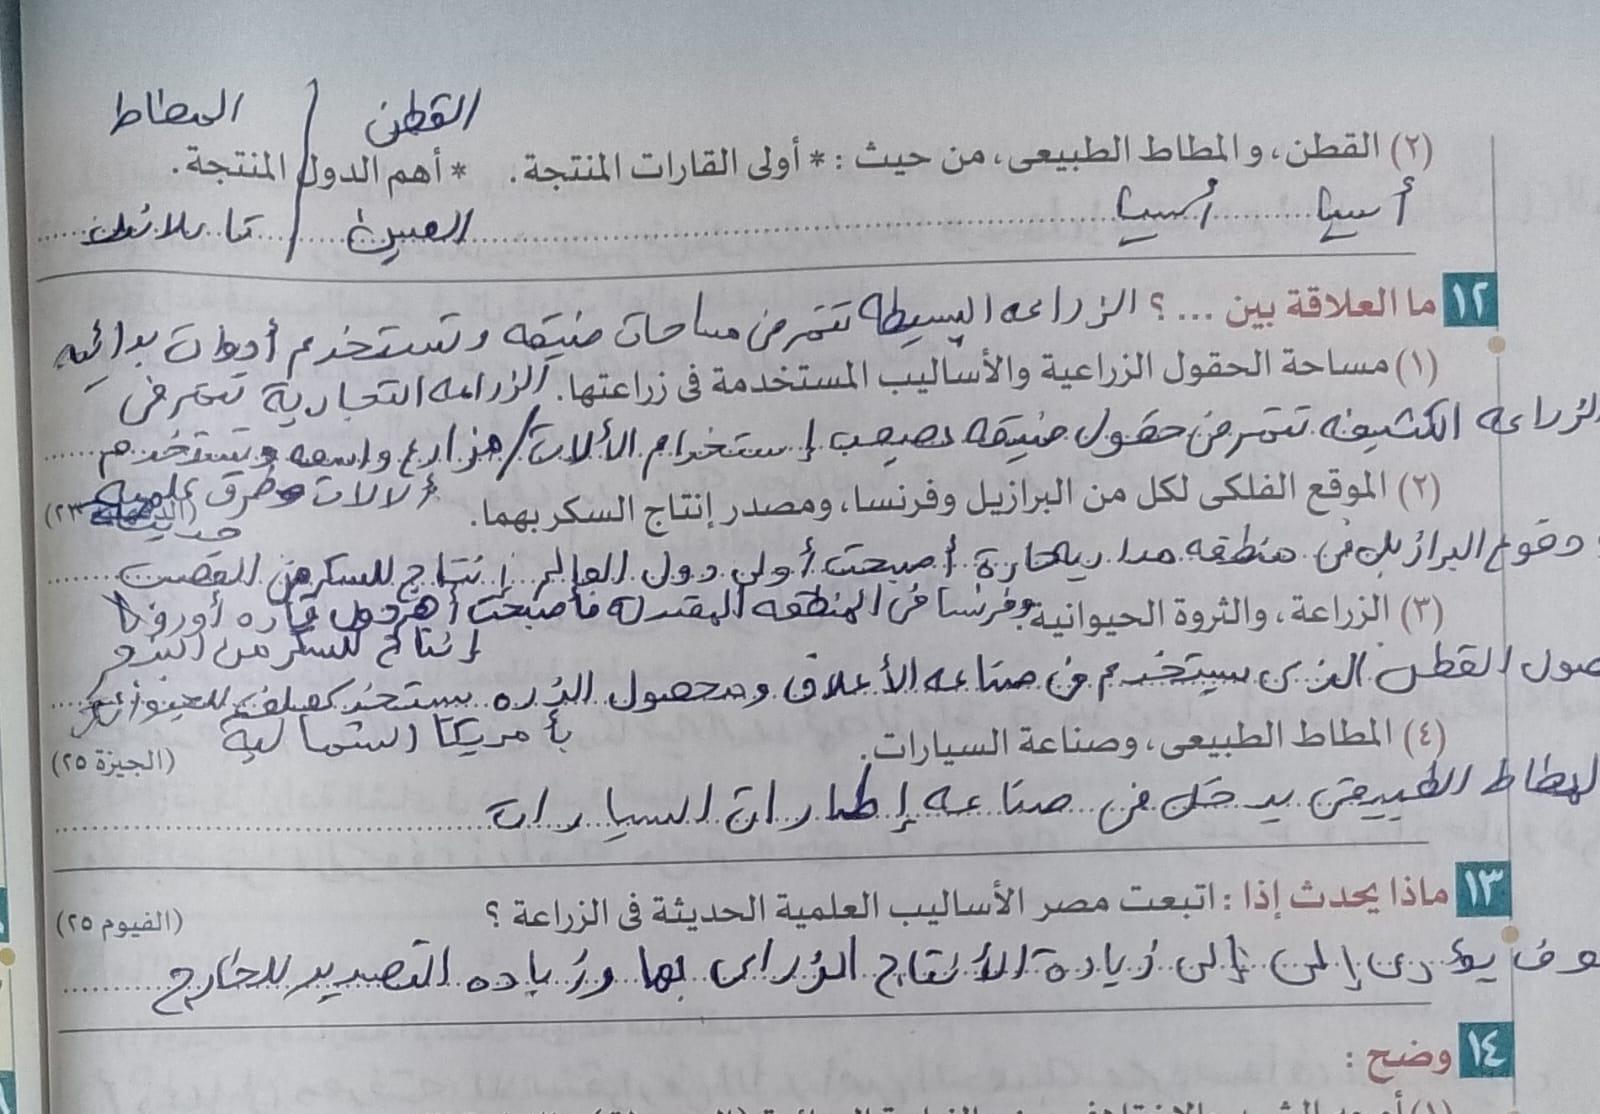 القطن / المطاط
(٢) القطن، والمطاط الطبيعى، من حيث : * أولى القارات المنتجة. * أهم الدول المنتجة.
أسيا أسيا الصين تايلاند
١٢ ما العلاقة بين ... ؟ الزراعه البسيطه تتم فى مساحات ضيقه وتستخدم أدوات بدائيه
(١) مساحة الحقول الزراعية والأساليب المستخدمة فى زراعتها. الزراعه التجارية تتم فى
الزراعه الكثيفه تتم فى حقول ضيقه يصعب إستخدام الألات / مزارع واسعه وتستخدم
ألالات وطرق علميه
(٢) الموقع الفلكى لكل من البرازيل وفرنسا، ومصدر إنتاج السكر بهما. حديثة ٢٣)
وقوع البرازيل فى منطقه مداريه حارة أصبحت أولى دول العالم إنتاج للسكر من القصب
(٣) الزراعة، والثروة الحيوانية. وفرنسا فى المنطقه المعتدله فأصبحت أهم دول قاره أوروبا
إنتاج للسكر من البنجر
القطن الذى يستخدم فى صناعه الأعلاف ومحصول الذره يستخدم كعلف للحيوانات
بأمريكا الشماليه
(٤) المطاط الطبيعى، وصناعة السيارات. (الجيزة ٢٥)
المطاط الطبيعى يدخل فى صناعه إطارات السيارات
١٣ ماذا يحدث إذا : اتبعت مصر الأساليب العلمية الحديثة فى الزراعة ؟ (الفيوم ٢٥)
يؤدى إلى إلى زيادة الأنتاج الزراعى بها وزياده التصدير للخارج
١٤ وضح :